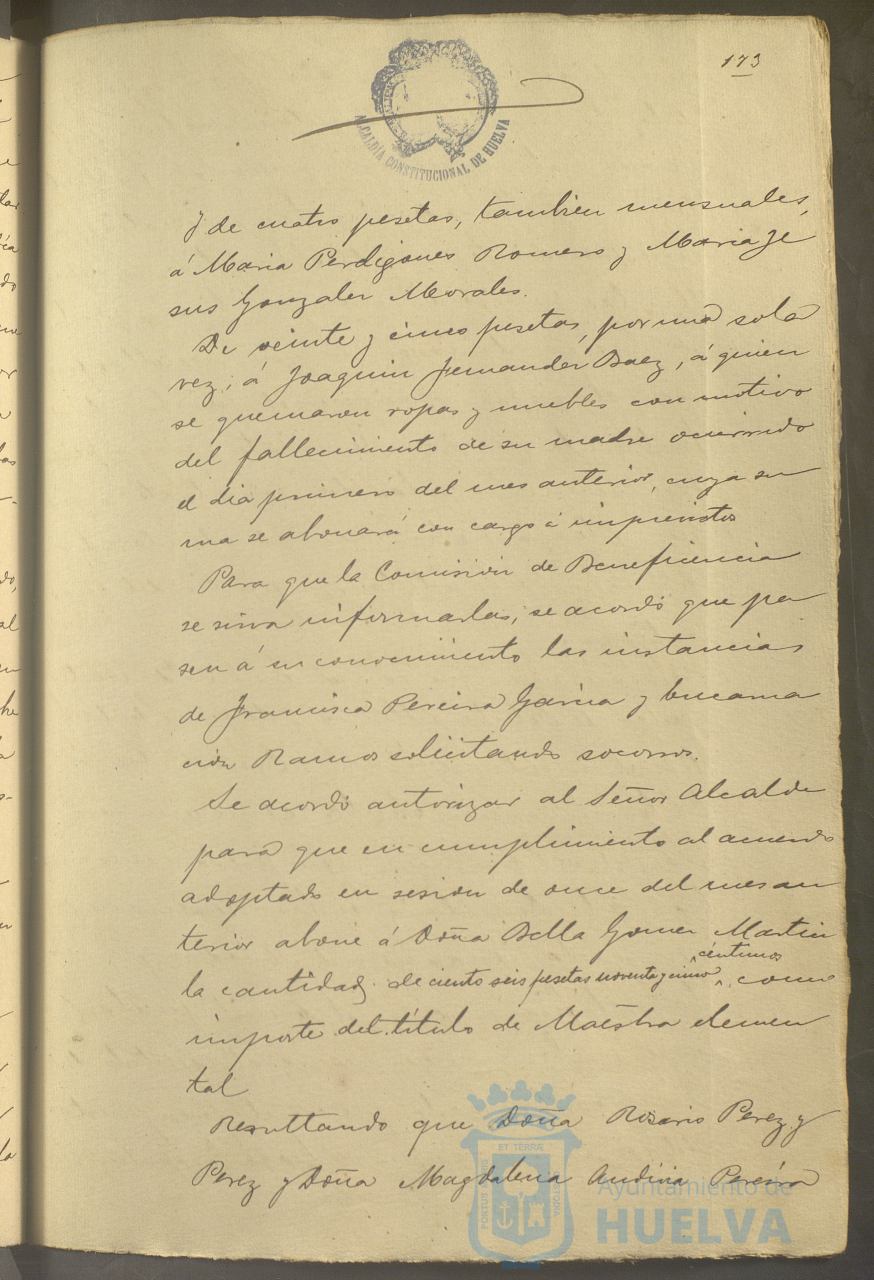 173
ALCALDÍA CONSTITUCIONAL DE HUELVA
y de cuatro pesetas, tambien mensuales,
á Maria Perdigones Romero y Maria Je
sus Gonzalez Morales.
De veinte y cinco pesetas, por una sola
vez, á Joaquin Fernandez Baez, á quien
se quemaron ropas y muebles con motivo
del fallecimiento de su madre ocurrido
el dia primero del mes anterior, cuya su
ma se abonará con cargo á imprevistos
Para que la Comisión de Beneficencia
se sirva informarlas, se acordó que pa
sen á su conocimiento las instancias
de Francisca Pereira Garcia y Encarna
ción Ramos solicitando socorros.
Se acordó autorizar al Señor Alcalde
para que en cumplimiento al acuerdo
adoptado en sesion de once del mes an
terior abone á Doña Bella Gomez Martin
la cantidad de ciento seis pesetas noventa y cinco céntimos, como
importe del título de Maestra elemen
tal
Resultando que Doña Rosario Perez y
Perez y Doña Magdalena Andivia Pereira
PORTUS MARIS ET TERRÆ CUSTODIA
Ayuntamiento de
HUELVA